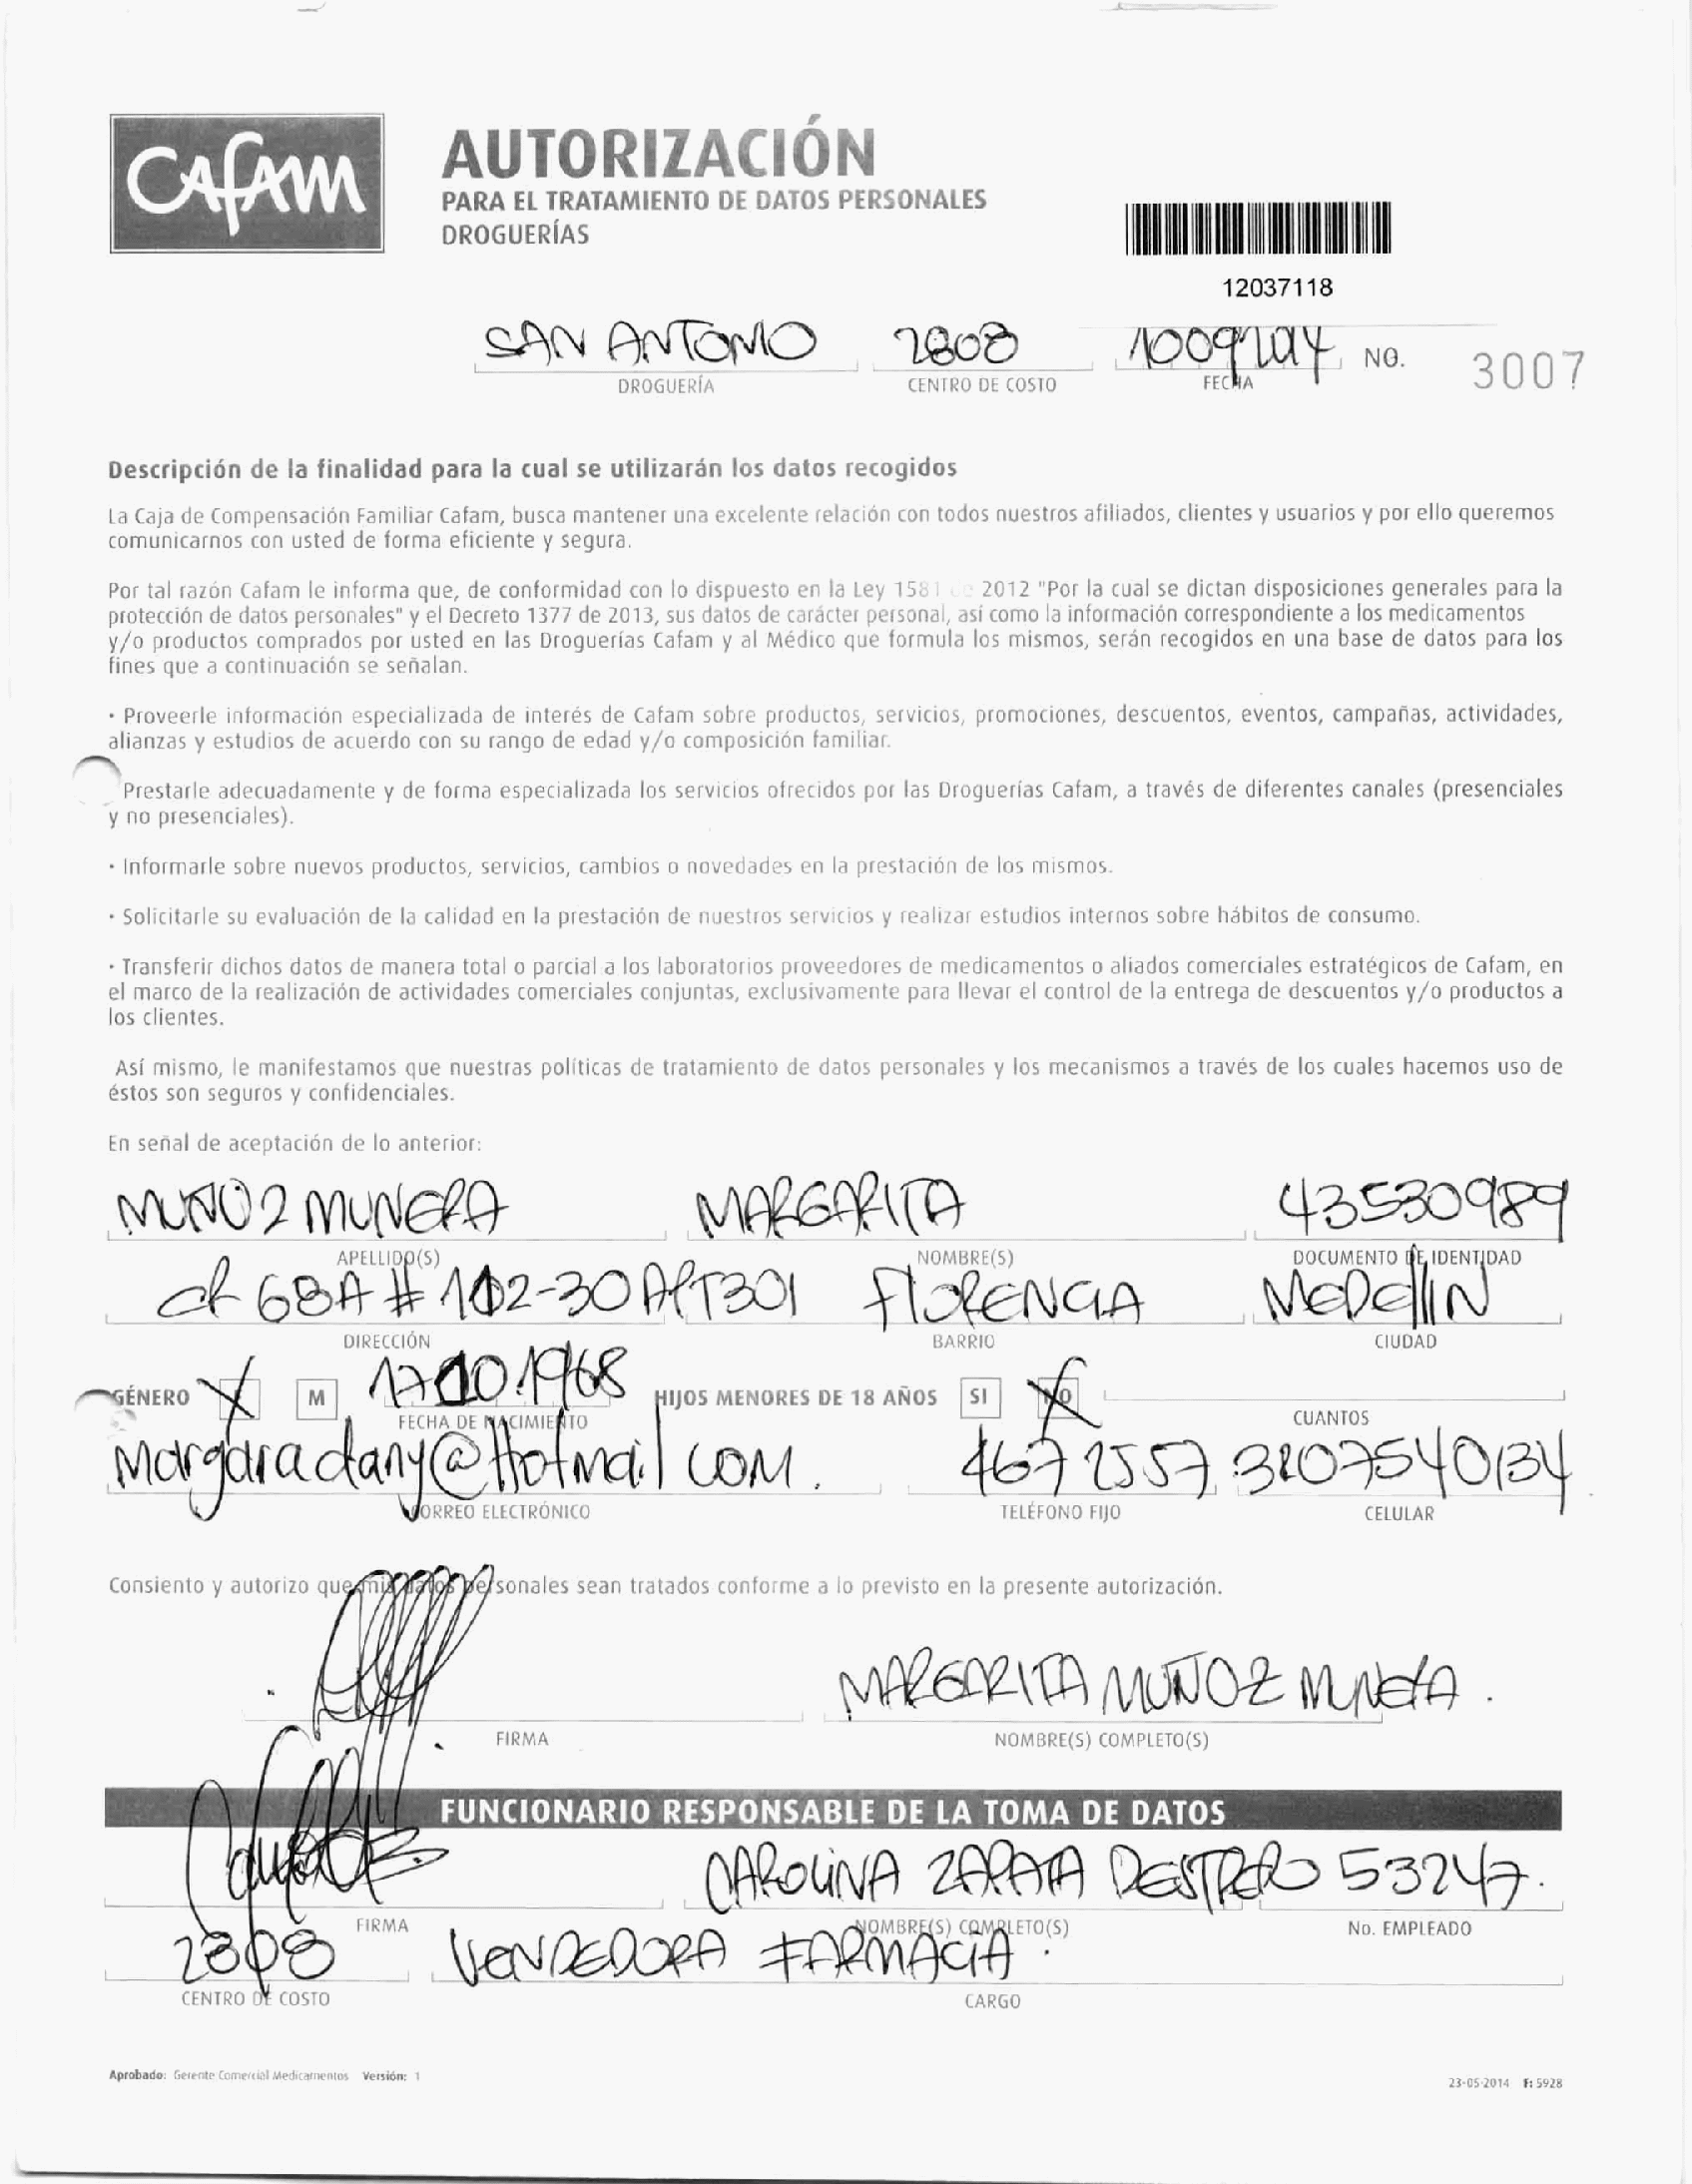 CAFAM
AUTORIZACIÓN
PARA EL TRATAMIENTO DE DATOS PERSONALES
DROGUERÍAS
12037118
SAN ANTONIO 2808
DROGUERÍA CENTRO DE COSTO FECHA NO. 3007
Descripción de la finalidad para la cual se utilizarán los datos recogidos
La Caja de Compensación Familiar Cafam, busca mantener una excelente relación con todos nuestros afiliados, clientes y usuarios y por ello queremos
comunicarnos con usted de forma eficiente y segura.
Por tal razón Cafam le informa que, de conformidad con lo dispuesto en la Ley 1581 de 2012 "Por la cual se dictan disposiciones generales para la
protección de datos personales" y el Decreto 1377 de 2013, sus datos de carácter personal, así como la información correspondiente a los medicamentos
y/o productos comprados por usted en las Droguerías Cafam y al Médico que formula los mismos, serán recogidos en una base de datos para los
fines que a continuación se señalan.
· Proveerle información especializada de interés de Cafam sobre productos, servicios, promociones, descuentos, eventos, campañas, actividades,
alianzas y estudios de acuerdo con su rango de edad y/o composición familiar.
Prestarle adecuadamente y de forma especializada los servicios ofrecidos por las Droguerías Cafam, a través de diferentes canales (presenciales
y no presenciales).
· Informarle sobre nuevos productos, servicios, cambios o novedades en la prestación de los mismos.
· Solicitarle su evaluación de la calidad en la prestación de nuestros servicios y realizar estudios internos sobre hábitos de consumo.
· Transferir dichos datos de manera total o parcial a los laboratorios proveedores de medicamentos o aliados comerciales estratégicos de Cafam, en
el marco de la realización de actividades comerciales conjuntas, exclusivamente para llevar el control de la entrega de descuentos y/o productos a
los clientes.
Así mismo, le manifestamos que nuestras políticas de tratamiento de datos personales y los mecanismos a través de los cuales hacemos uso de
éstos son seguros y confidenciales.
En señal de aceptación de lo anterior:
MUÑOZ MUNERA MARGARITA 43530989
APELLIDO(S) NOMBRE(S) DOCUMENTO DE IDENTIDAD
68A # 102-30 APT 301 FLORENCIA MEDELLIN
DIRECCIÓN BARRIO CIUDAD
GÉNERO X M 17 10 1968 HIJOS MENORES DE 18 AÑOS SI NO X
FECHA DE NACIMIENTO CUANTOS
margaradany@Hotmail COM. 467 2557 3207540134
CORREO ELECTRÓNICO TELÉFONO FIJO CELULAR
Consiento y autorizo que mis datos personales sean tratados conforme a lo previsto en la presente autorización.
MARGARITA MUÑOZ MUNERA.
FIRMA NOMBRE(S) COMPLETO(S)
FUNCIONARIO RESPONSABLE DE LA TOMA DE DATOS
CAROLINA ZAPATA 53247.
FIRMA NOMBRE(S) COMPLETO(S) No. EMPLEADO
2808 VENDEDORA FARMACIA.
CENTRO DE COSTO CARGO
Aprobado: Gerente Comercial Medicamentos Versión: 1
23-05-2014 F: 5928